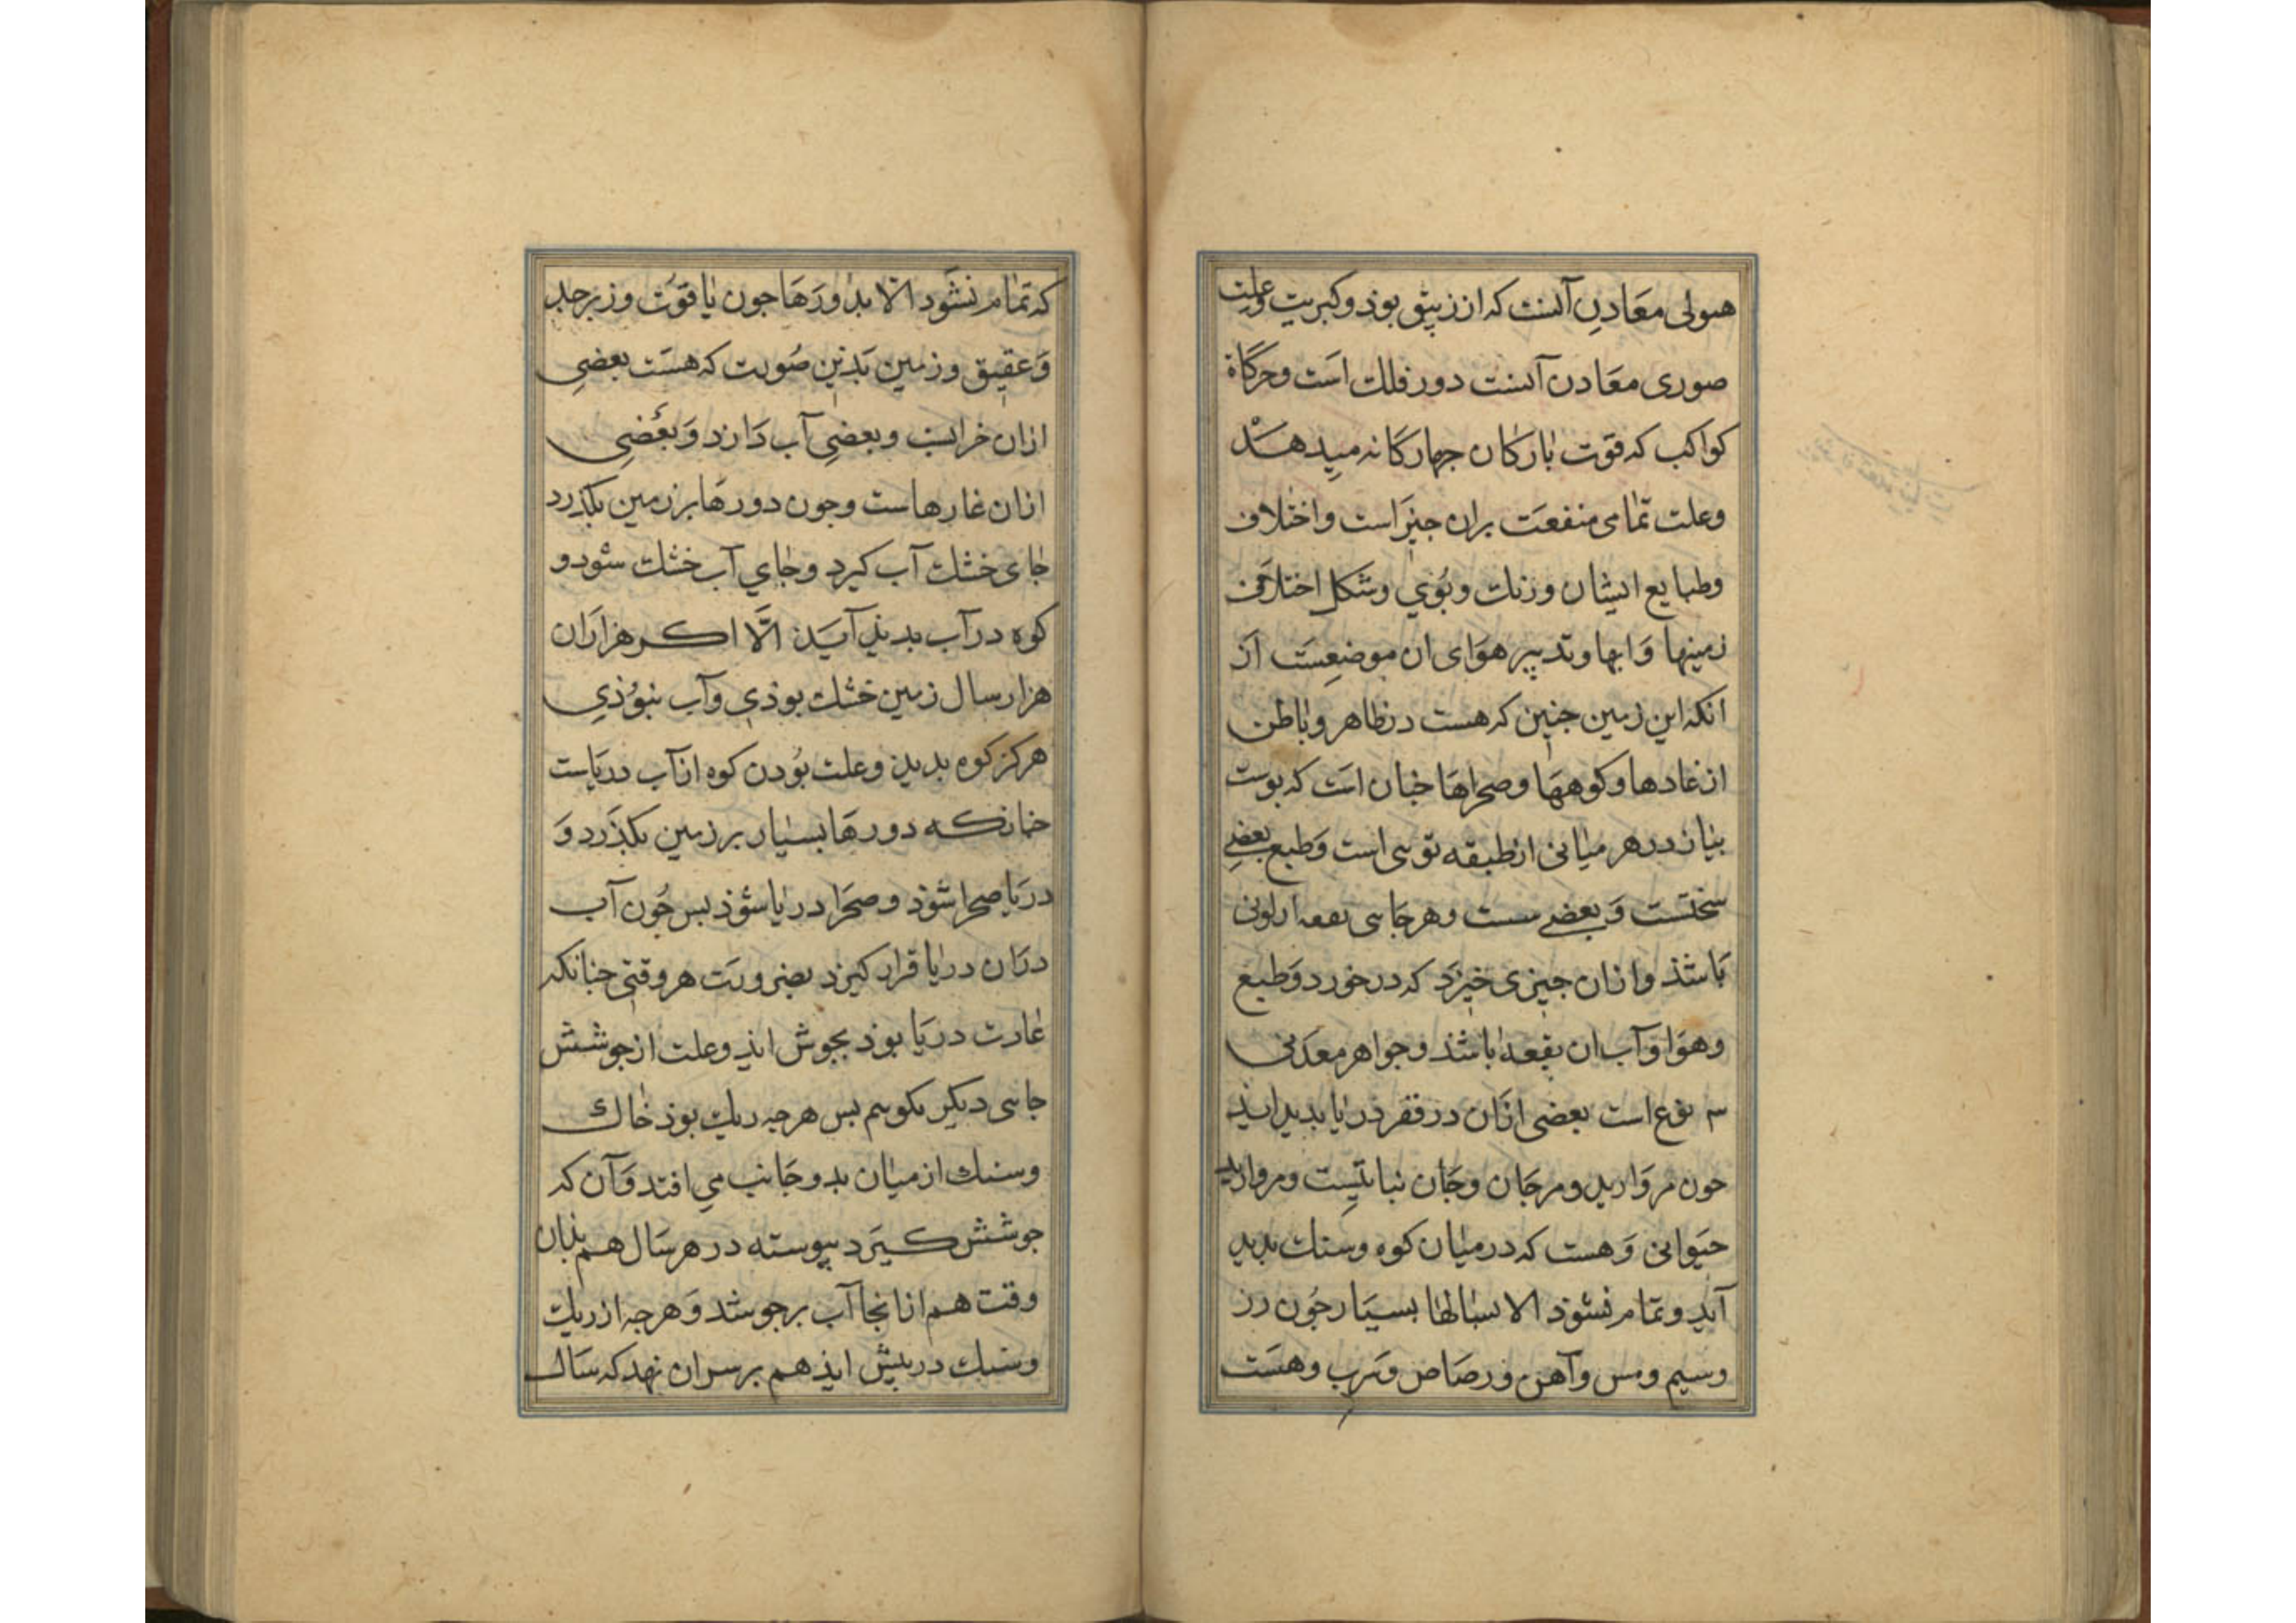 هیولی معَادِن آنست که از زیبق بوذ و کبریت وعلت
صوری معَادن آنست دور فلك اسَت وحرکاة
کواکب که قوّت بٰارکٰان جهارکَانه میدهَد
وعلت تمٰامی منفعَت بران جیزاست واختلاف
وطبایع ایشان ورنك وبُوي وشکل اختلاف
زمینها وَابها وتدبیر هوَای ان موضعِسَت اَز
انکه این زمین جنین که هست در ظاهر وبٰاطن
از غارها وکوههَا وصحراهَا جنان اسَت که بوست
بیاز در هر میٰانی از طبقه توىی است وَطبع بعضے
سختست وَبعضے سست وهرجَاىی بقعه از لونی
بَاشذ وازان جیزی خیزَد که در خورد وَطبع
وهوَا وَآب ان بقعه بٰاشذ وجواهر معدَنی
سه نوع است بعضی ازَان در قعر درٰیا بدید اید
جون مروَارید ومرجَان وجَان نباتیست ومروارید
حیَوانی وَهست که در میٰان کوه وسنك بدید
آید وتمَام نشوذ الا بسٰالهٰا بسیَار جُون زر
وسیم ومس وآهن ورصَاص وسُرب وهسَت
که تمَام نشَود الّا بدَاورَهَا جون یٰاقوُت وزبرجد
وَعقیق وزمین بَدین صُورت که هسَت بعضیِ
ازان خرابست وبعضیِ آب دَارد وَبعَضیِ
ازان غارهاست وجون دورهَا بر زمین بکذرد
جٰای خشك آب کیرد وجٰاي آب خشك شود و
کوه در آب بدید آیَد الّا اکر هزاران
هزار سال زمین خشك بوذی وآب نبوُذي
هرکز کوه بدید وعلت بوُدن کوه از آب دریَاست
جنانکه دورهَا بسیٰار بر زمین بکذَرد وَ
دریَا صحرا شوُذ وصحَرا دریٰا شوُذ بس جُون آب
درَان درٰیا قرار کیرد بضرورَت هر وقتی جنانکه
عٰادت دریَا بوذ بجوش اید وعلت از جوشش
جاىی دیکر بکویم بس هرجه ریك بوذ خٰاك
وسنك از میٰان بدو جَانب می افتد وَآن که
جوشش کیرَد بیوسته در هر سَال هم بذان
وقت هم ازانجا آب برجوشد وَهرجه از ریك
وسنك در بیش اید هم بر سر ان نهد که سَال